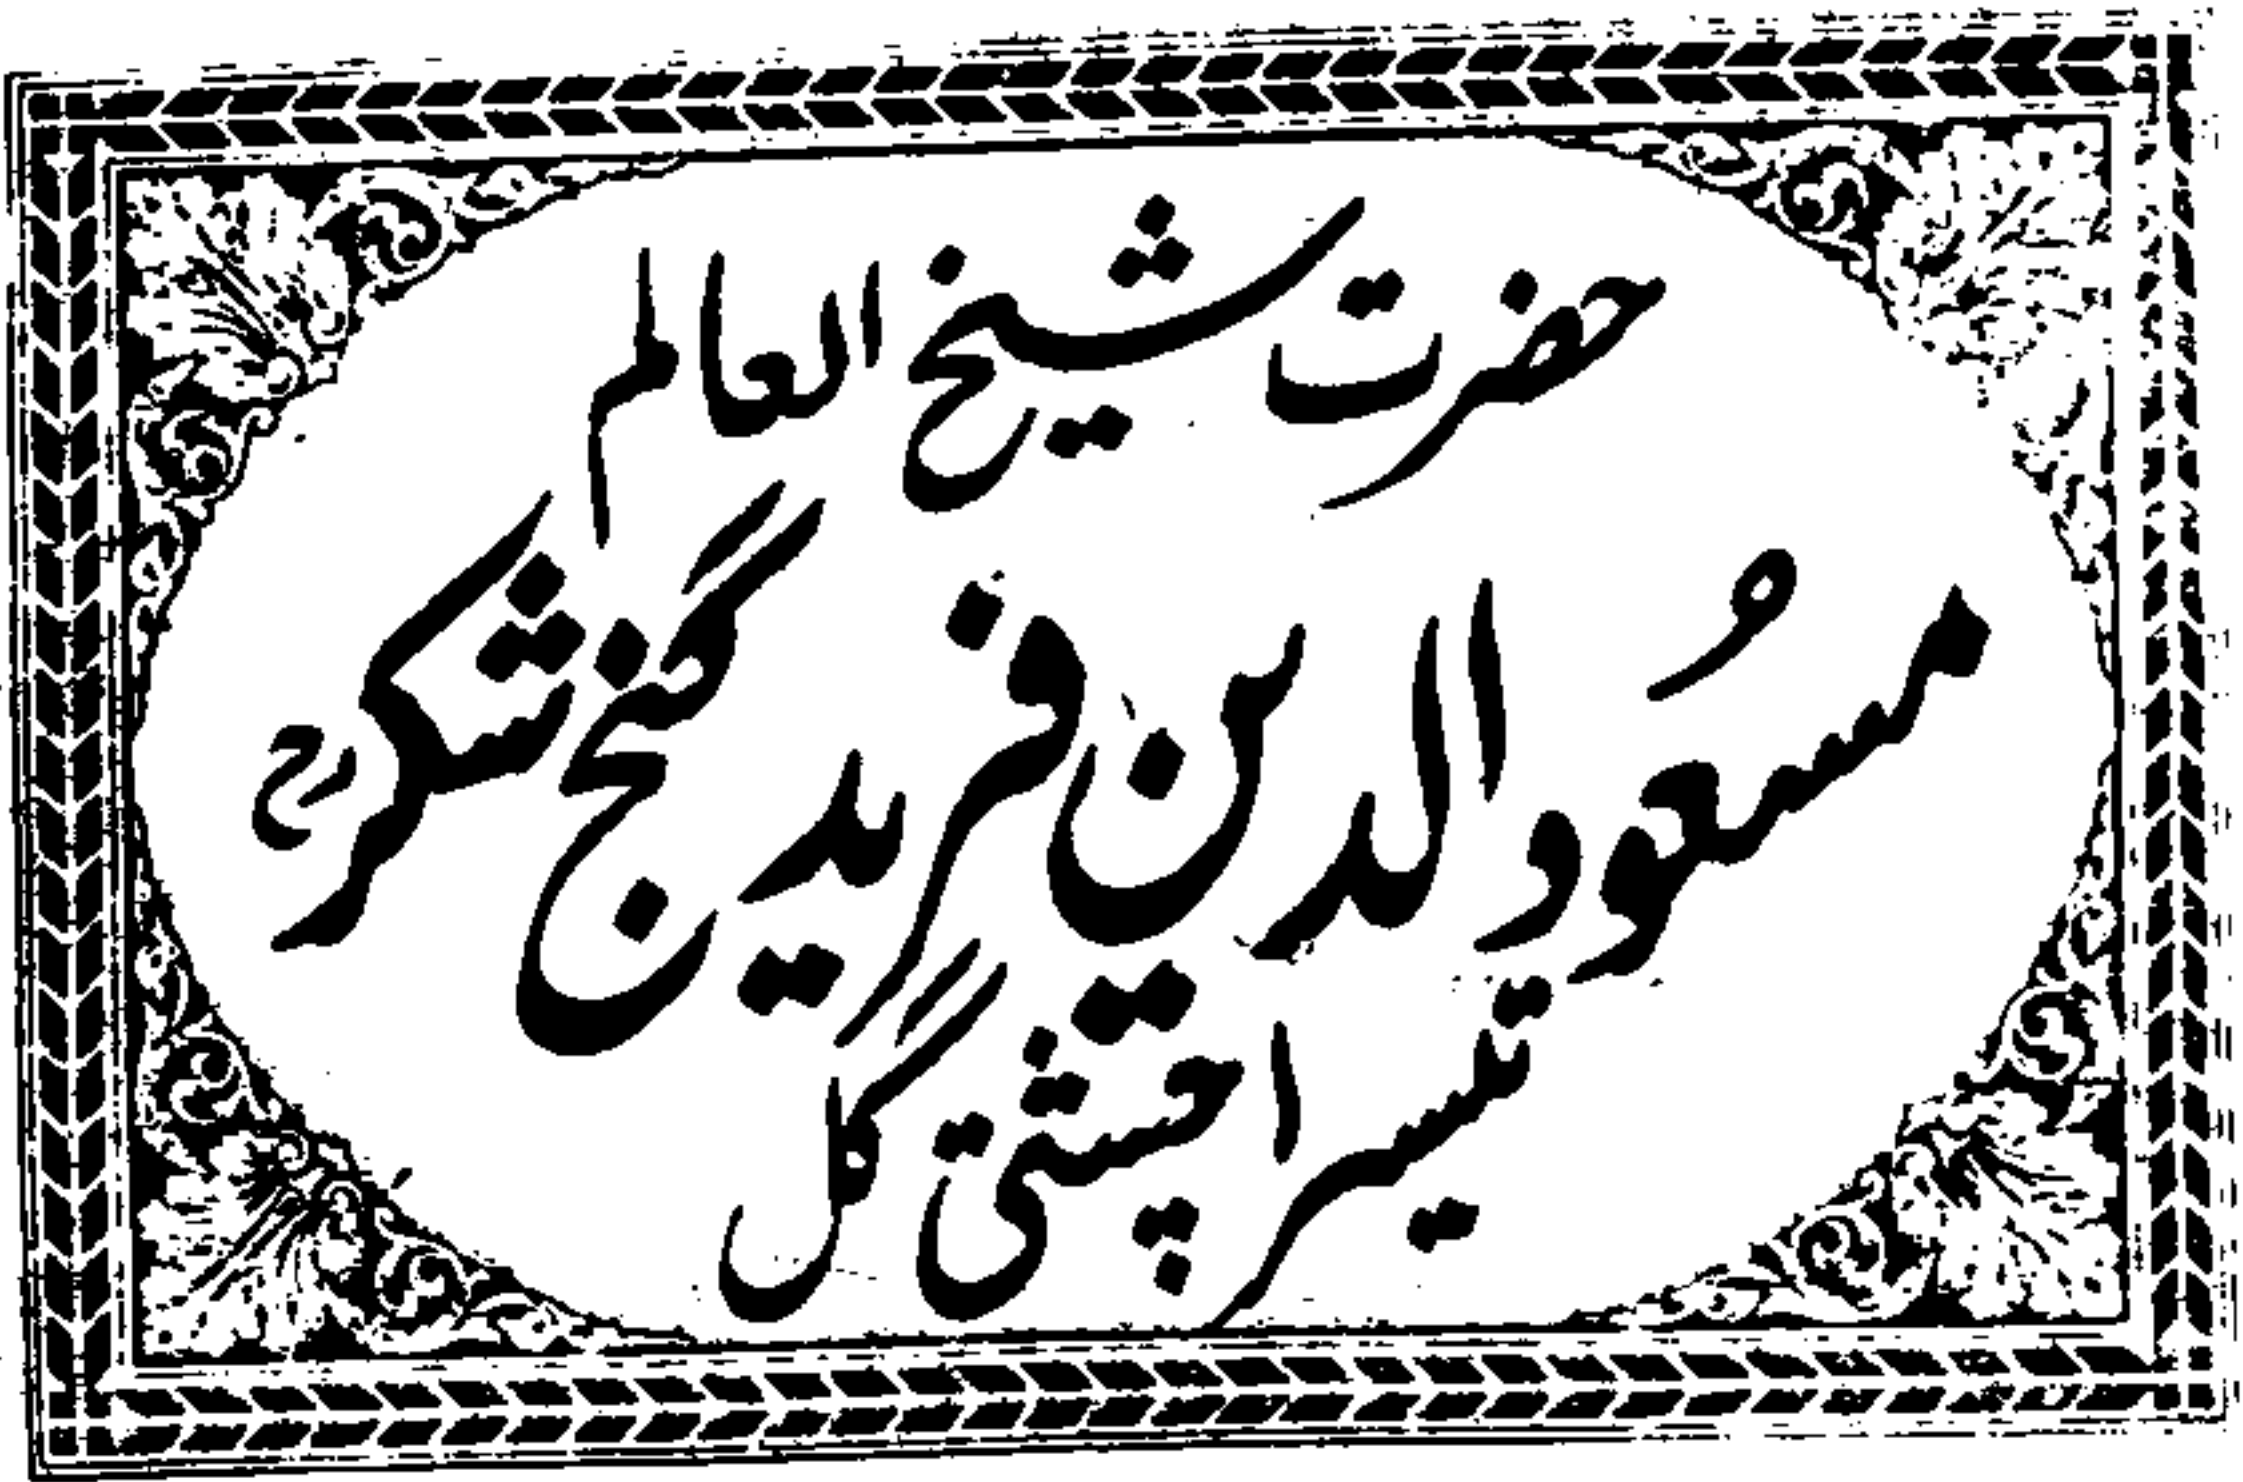 حضرت شیخ العالم
مسعُود الدین فرید گنج شکرؒ
تیسرا چشتی گل